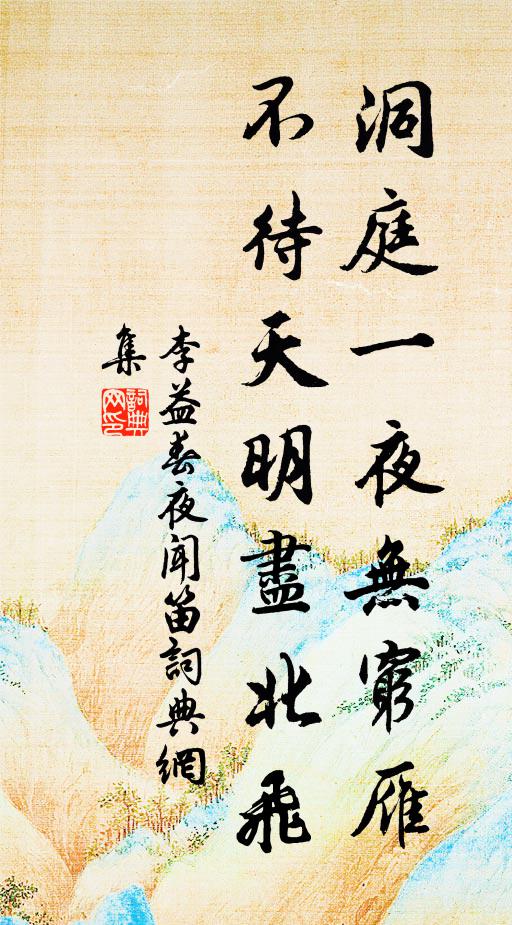 洞庭一夜無窮雁
不待天明盡北飛
李益春夜闻笛詞典網
集
詞典網印